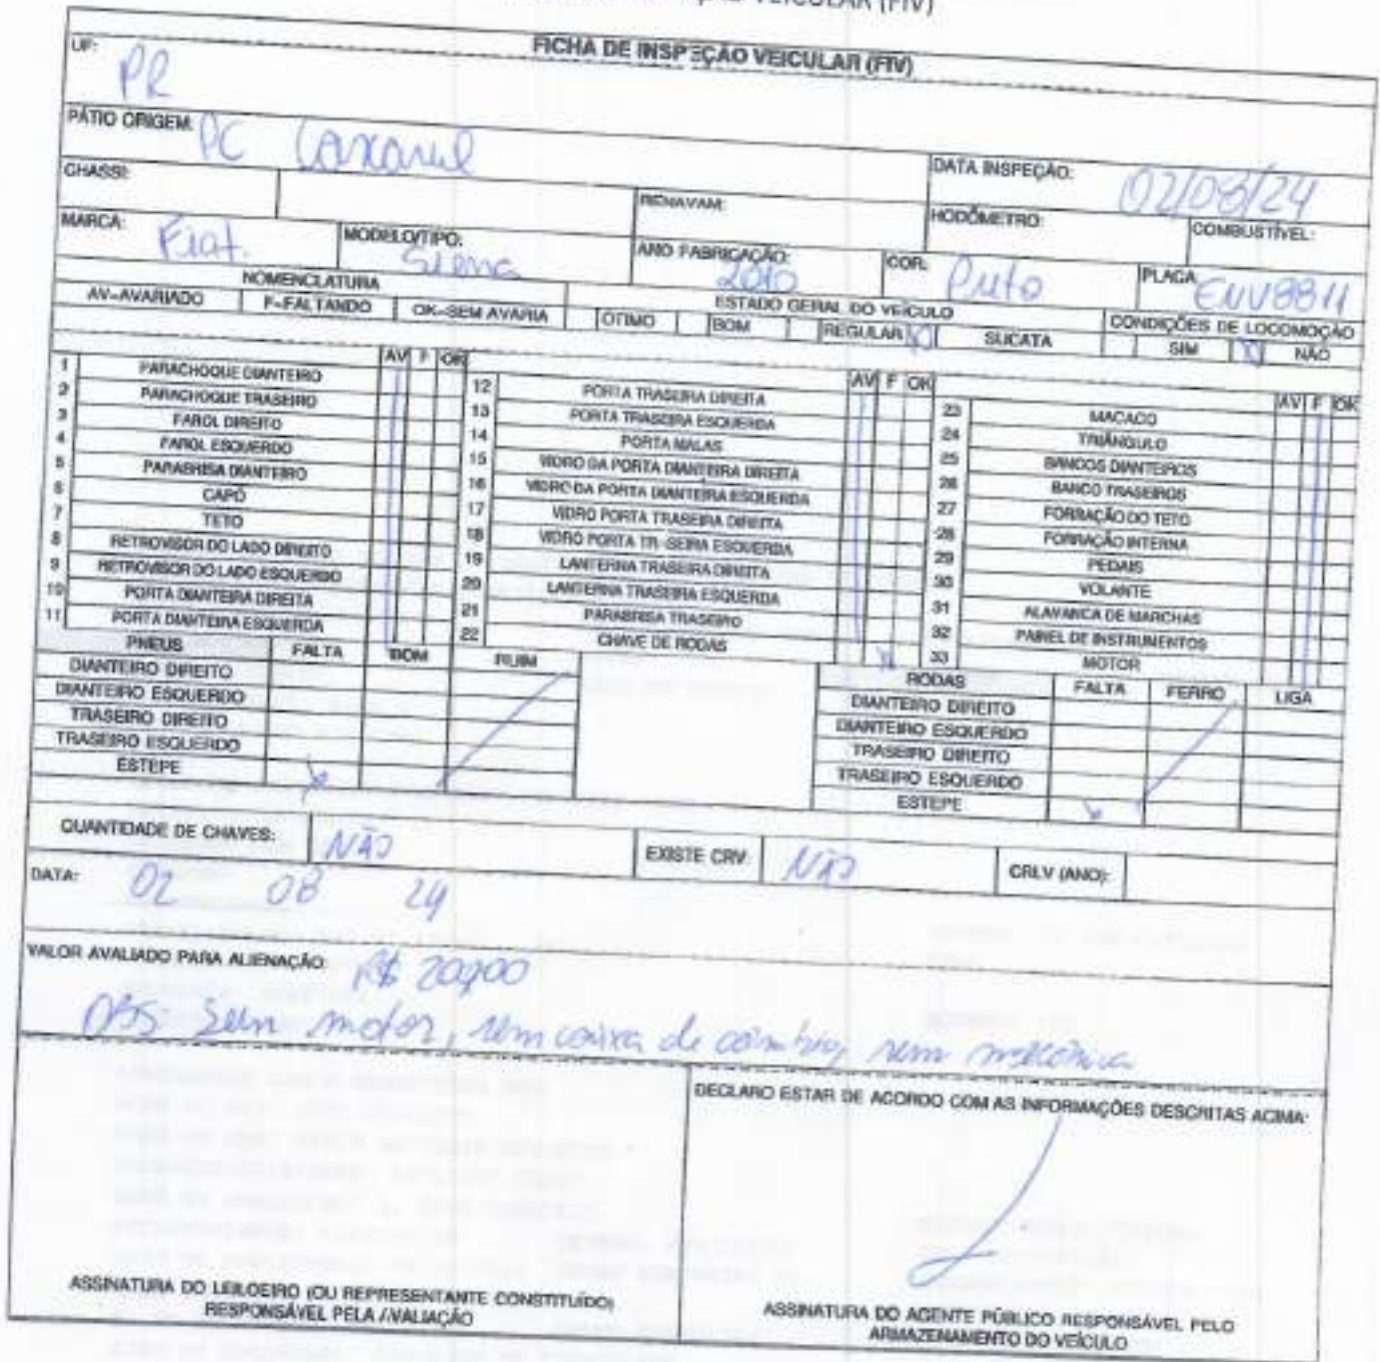 VEICULAR (FIV)
FICHA DE INSPEÇÃO VEICULAR (FIV)
UF: PR
PÁTIO ORIGEM: PC
DATA INSPEÇÃO: 02/08/24
CHASSI:
RENAVAM:
HODÔMETRO:
COMBUSTÍVEL:
MARCA: Fiat.
MODELO/TIPO: Siena
ANO FABRICAÇÃO: 2010
COR: Preto
PLACA: ENV8811
NOMENCLATURA
ESTADO GERAL DO VEÍCULO
CONDIÇÕES DE LOCOMOÇÃO
AV-AVARIADO F-FALTANDO OK-SEM AVARIA ÓTIMO BOM REGULAR X SUCATA SIM X NÃO
AV F OK
1 PARACHOQUE DIANTEIRO
2 PARACHOQUE TRASEIRO
3 FAROL DIREITO
4 FAROL ESQUERDO
5 PARABRISA DIANTEIRO
6 CAPÔ
7 TETO
8 RETROVISOR DO LADO DIREITO
9 RETROVISOR DO LADO ESQUERDO
10 PORTA DIANTEIRA DIREITA
11 PORTA DIANTEIRA ESQUERDA
AV F OK
12 PORTA TRASEIRA DIREITA
13 PORTA TRASEIRA ESQUERDA
14 PORTA MALAS
15 VIDRO DA PORTA DIANTEIRA DIREITA
16 VIDRO DA PORTA DIANTEIRA ESQUERDA
17 VIDRO PORTA TRASEIRA DIREITA
18 VIDRO PORTA TR-SEIRA ESQUERDA
19 LANTERNA TRASEIRA DIREITA
20 LANTERNA TRASEIRA ESQUERDA
21 PARABRISA TRASEIRO
22 CHAVE DE RODAS X
AV F OK
23 MACACO
24 TRIÂNGULO
25 BANCOS DIANTEIROS
26 BANCO TRASEIROS
27 FORRAÇÃO DO TETO
28 FORRAÇÃO INTERNA
29 PEDAIS
30 VOLANTE
31 ALAVANCA DE MARCHAS
32 PAINEL DE INSTRUMENTOS
33 MOTOR
PNEUS FALTA BOM RUIM
DIANTEIRO DIREITO
DIANTEIRO ESQUERDO
TRASEIRO DIREITO
TRASEIRO ESQUERDO
ESTEPE X
RODAS FALTA FERRO LIGA
DIANTEIRO DIREITO
DIANTEIRO ESQUERDO
TRASEIRO DIREITO
TRASEIRO ESQUERDO
ESTEPE X
QUANTIDADE DE CHAVES: NÃO
EXISTE CRV: NÃO
CRLV (ANO):
DATA: 02 08 24
VALOR AVALIADO PARA ALIENAÇÃO: R$ 200,00
OBS Sem motor, sem caixa de câmbio, sem mecânica
DECLARO ESTAR DE ACORDO COM AS INFORMAÇÕES DESCRITAS ACIMA:
ASSINATURA DO LEILOEIRO (OU REPRESENTANTE CONSTITUÍDO)
RESPONSÁVEL PELA AVALIAÇÃO
ASSINATURA DO AGENTE PÚBLICO RESPONSÁVEL PELO
ARMAZENAMENTO DO VEÍCULO